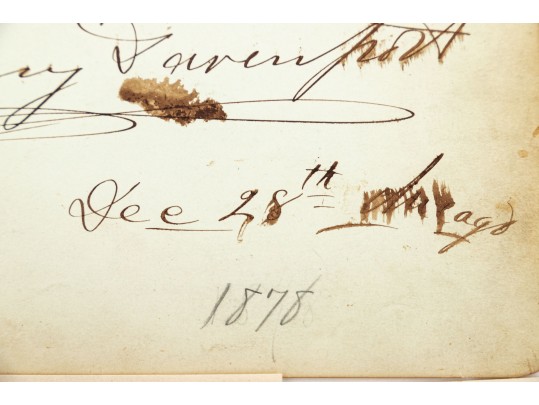 y Davenport
Dec 28th
1878